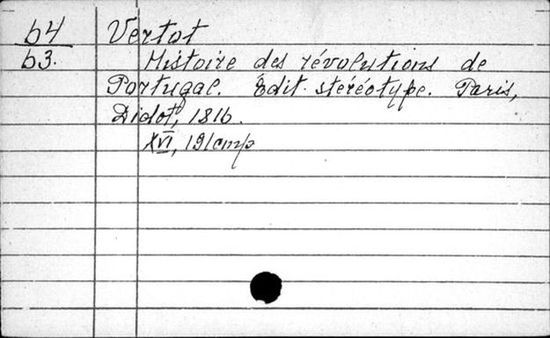 64 Vertot
63. Histoire des révolutions de
Portugal. Édit. stéréotype. Paris,
Didot, 1816.
XVI, 191 стр